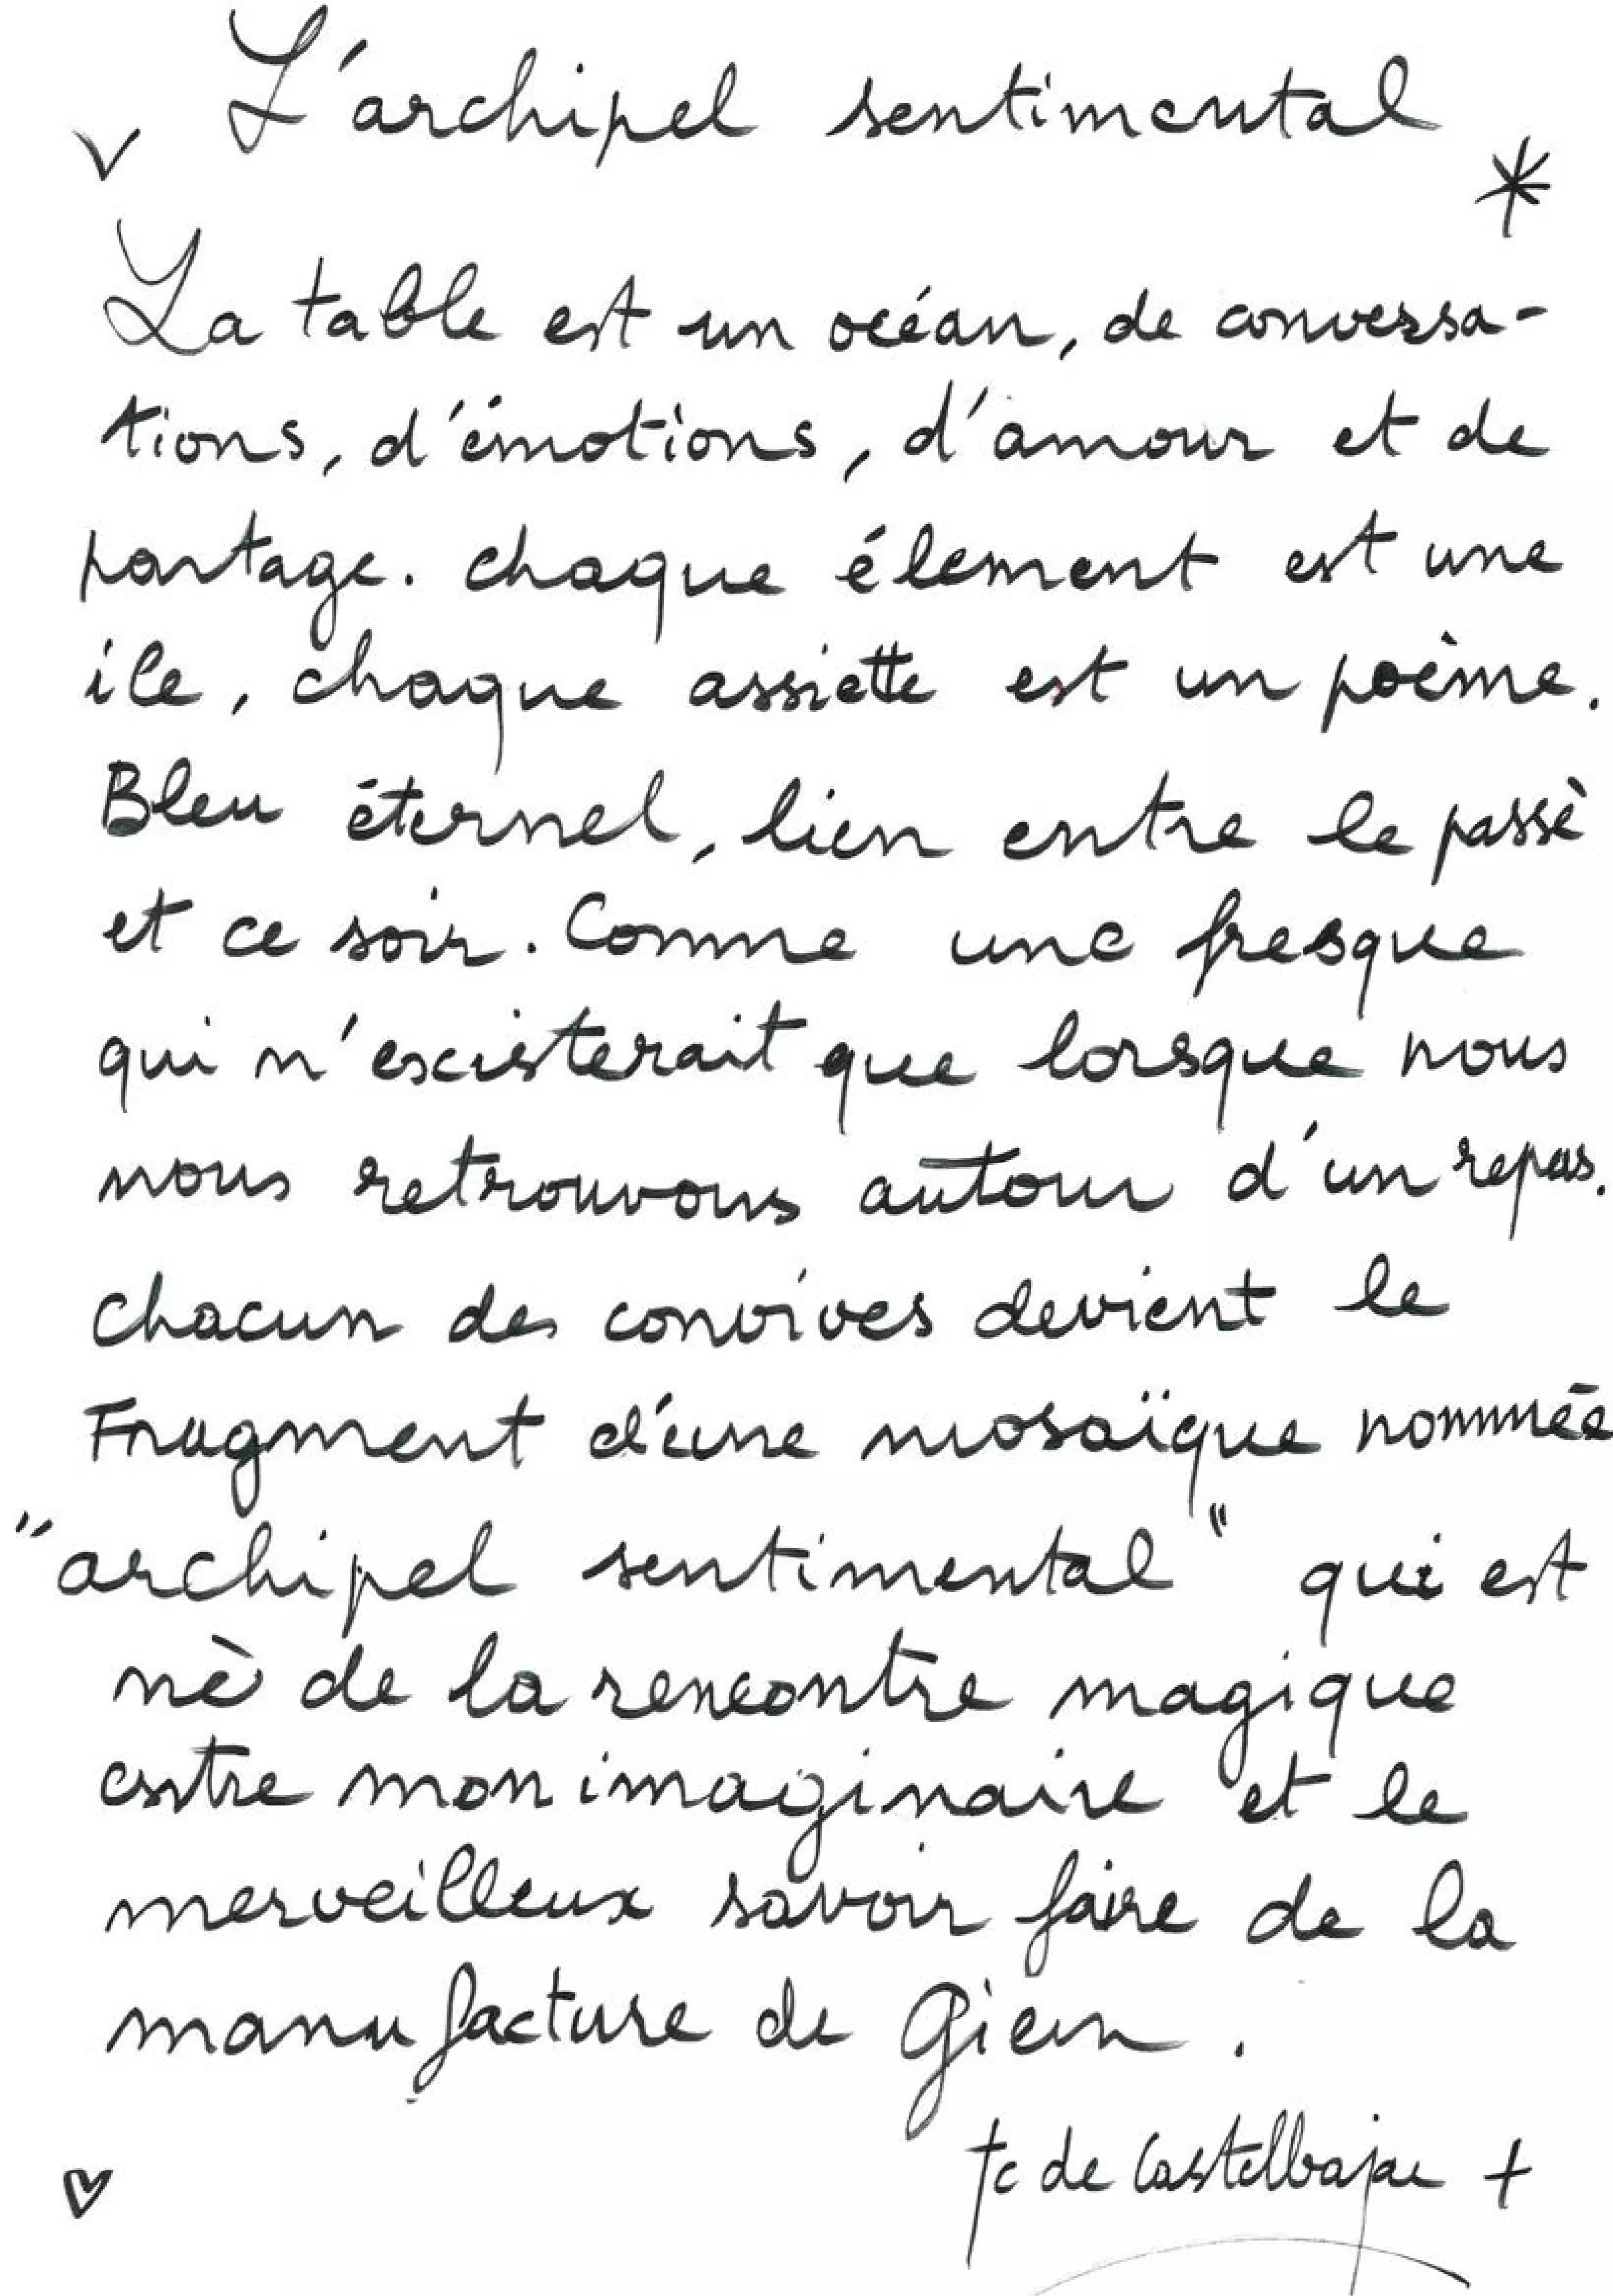 L'archipel sentimental
La table est un océan, de conversa-
tions, d'émotions, d'amour et de
partage. chaque élement est une
ile, chaque assiette est un poème.
Bleu éternel, lien entre le passè
et ce soir. Comme une fresque
qui n'existerait que lorsque nous
nous retrouvons autour d'un repas.
chacun des convives devient le
Fragment d'une mosaïque nommée
"archipel sentimental" qui est
nè de la rencontre magique
entre mon imaginaire et le
merveilleux savoir faire de la
manufacture de Gien.
Jc de Castelbajac +